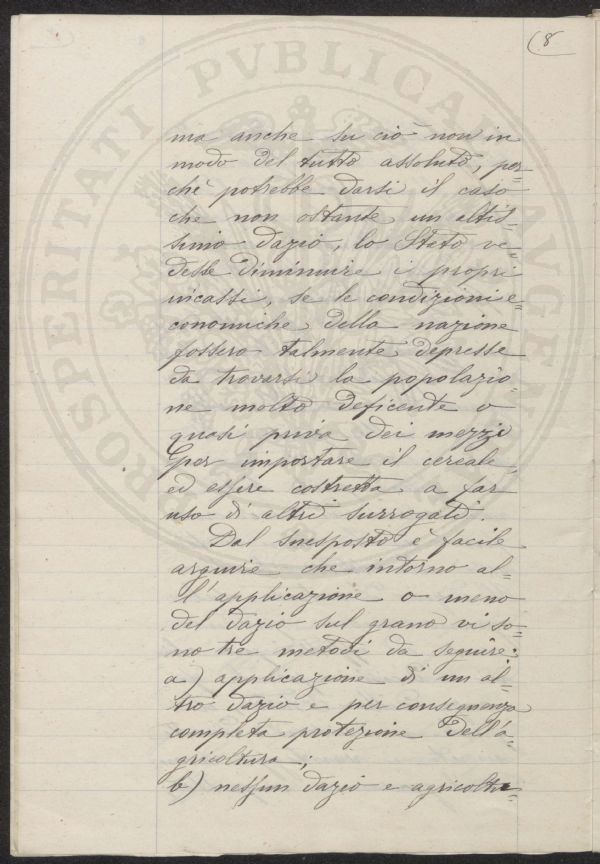 8
PROSPERITATI PVBLICAE AVGEN
ma anche su ciò non in
modo del tutto assoluto, per-
chè potrebbe darsi il caso
che non ostante un altis-
simo dazio, lo Stato ve-
desse diminuire i propri
incassi, se le condizioni e-
conomiche della nazione
fossero talmente depresse
da trovarsi la popolazio-
ne molto deficente o
quasi priva dei mezzi
per importare il cereale,
ed essere costretta a far
uso di altri surrogati.
Dal suesposto è facile
arguire che intorno al-
l'applicazione o meno
del dazio sul grano vi so-
no tre metodi da seguire:
a) applicazione di un al-
tro dazio e per conseguenza
completa protezione dell'a-
gricoltura;
b) nessun dazio e agricoltu-